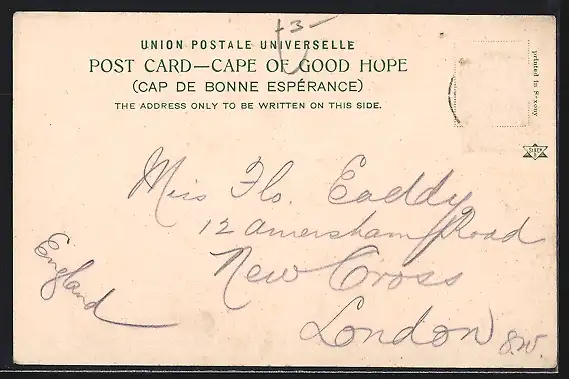 +3-
UNION POSTALE UNIVERSELLE
POST CARD—CAPE OF GOOD HOPE
(CAP DE BONNE ESPÉRANCE)
THE ADDRESS ONLY TO BE WRITTEN ON THIS SIDE.
printed in Saxony
Miss Flo. Eaddy
12 Amersham Road
New Cross
London S.W.
England